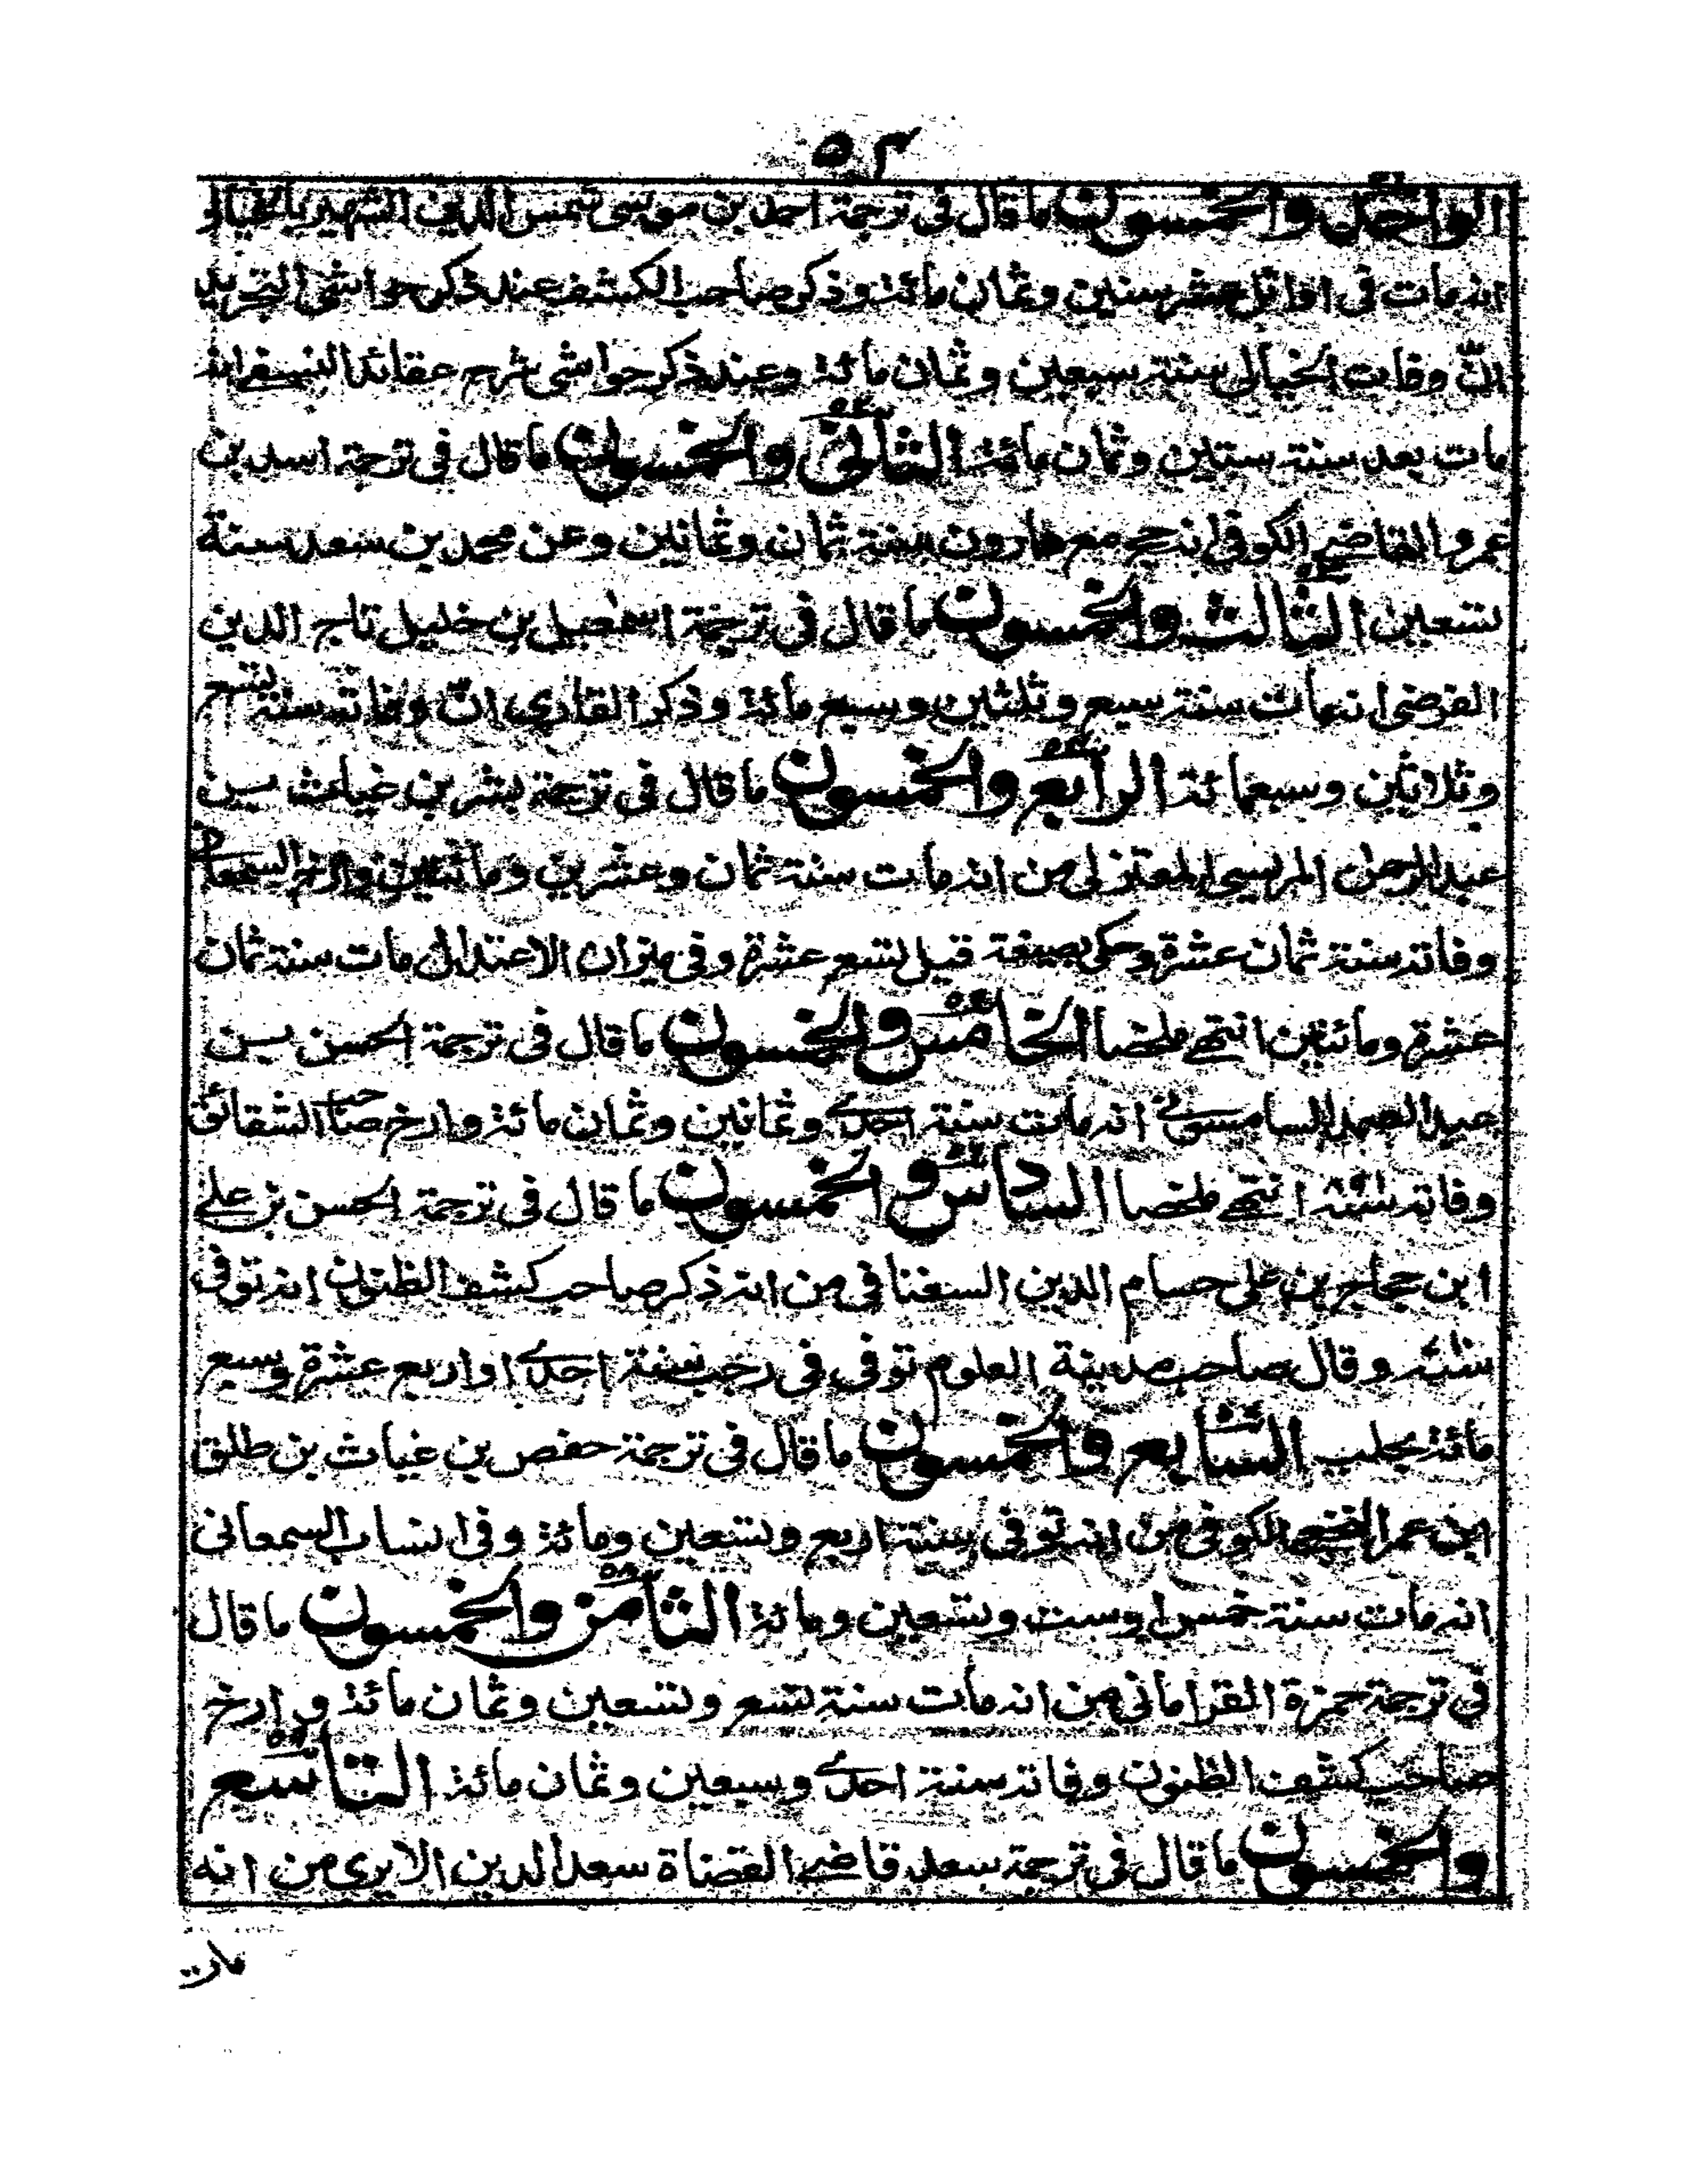 ٥٣
الواحد والخمسون ما قال في ترجمة احمد بن موسى شمس الدين الشهير بالخيالي
انه مات في اوائل عشر سنين وثمان مائة وذكر صاحب الكشف عند ذكر حواشي التجريد
انّ وفات الخيالي سنة سبعين وثمان مائة وعند ذكر حواشي شرح عقائد النسفي انه
مات بعد سنة ستين وثمان مائة الثاني والخمسون ما قال في ترجمة اسد بن
عمرو القاضي الكوفي انه حج مع هارون سنة ثمان وثمانين وعن محمد بن سعد سنة
تسعين الثالث والخمسون ما قال في ترجمة اسمعيل بن خليل تاج الدين
الفرضي انه مات سنة سبع وثلثين وسبع مائة وذكر القاري انّ وفاته سنة تسع
وثلاثين وسبعمائة الرابع والخمسون ما قال في ترجمة بشر بن غياث بن
عبد الرحمن المريسي المعتزلي من انه مات سنة ثمان وعشرين ومائتين وارخ السمعاني
وفاته سنة ثمان عشرة وحكى بصيغة قيل تسع عشرة وفي ميزان الاعتدال مات سنة ثمان
عشرة ومائتين انتهى ملخصا الخامس والخمسون ما قال في ترجمة الحسن بن
عبد الصمد السامسوني انه مات سنة احدى وثمانين وثمان مائة وارخ صاحب الشقائق
وفاته سنة ٨٩١ انتهى ملخصا السادس والخمسون ما قال في ترجمة الحسن بن علي
ابن حجاج بن علي حسام الدين السغناقي من انه ذكر صاحب كشف الظنون انه توفي
وقال صاحب مدينة العلوم توفي في رجب سنة احدى او اربع عشرة وسبع
مائة بحلب السابع والخمسون ما قال في ترجمة حفص بن غياث بن طلق
ابن عمر النخعي الكوفي من انه توفي سنة اربع وتسعين ومائة وفي انساب السمعاني
انه مات سنة خمس او ست وتسعين ومائة الثامن والخمسون ما قال
في ترجمة حمزة القراماني من انه مات سنة تسع وتسعين وثمان مائة و ارخ
صاحب كشف الظنون وفاته سنة احدى وسبعين وثمان مائة التاسع
والخمسون ما قال في ترجمة سعد قاضي القضاة سعد الدين الايري من انه
مات